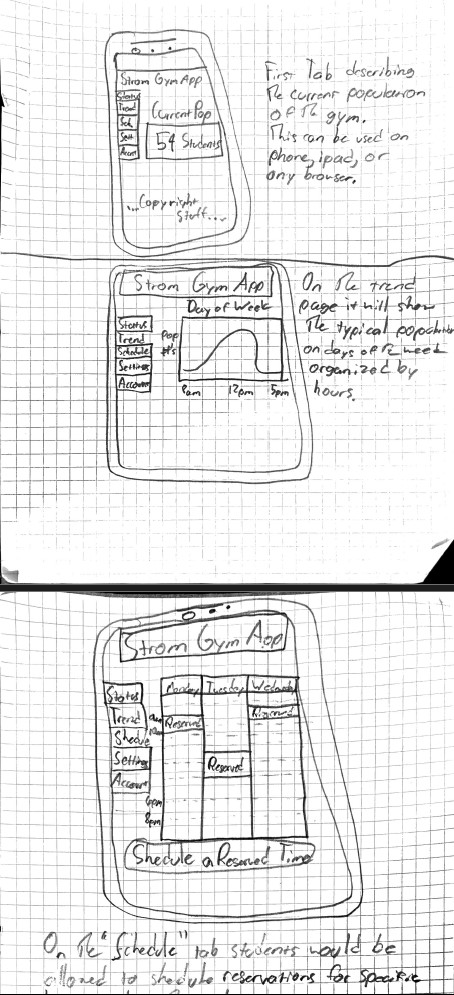 Strom Gym App
Status
Trend
Sch.
Sett
Accnt
Current Pop
54 Students
...Copyright
Stuff...
First Tab describing
the current population
of the gym.
This can be used on
phone, ipad, or
any browser.
Strom Gym App
Day of Week
Status
Trend
Schedule
Settings
Account
Pop
#'s
8am 12pm 5pm
On the trend
page it will show
the typical population
on days of the week
organized by
hours.
Strom Gym App
Status
Trend
Shedule
Settings
Account
Monday Tuesday Wednesday
Reserved
Reserved
Reserved
6pm
8pm
Shedule a Reserved Time
On the "Schedule" tab students would be
allowed to shedule reservations for specific